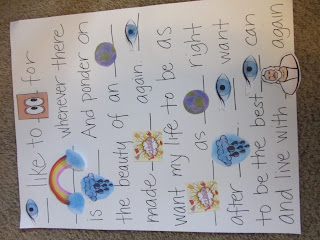 _ like to _ for
_ whenever there
is _ And ponder on
the beauty of an _
made _ again _
want my life to be as
_ as _ right
after _ _ want
to be the best _ can
and live with _ again